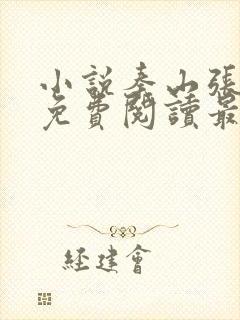 小說秦山張
免費閱讀最
經建會